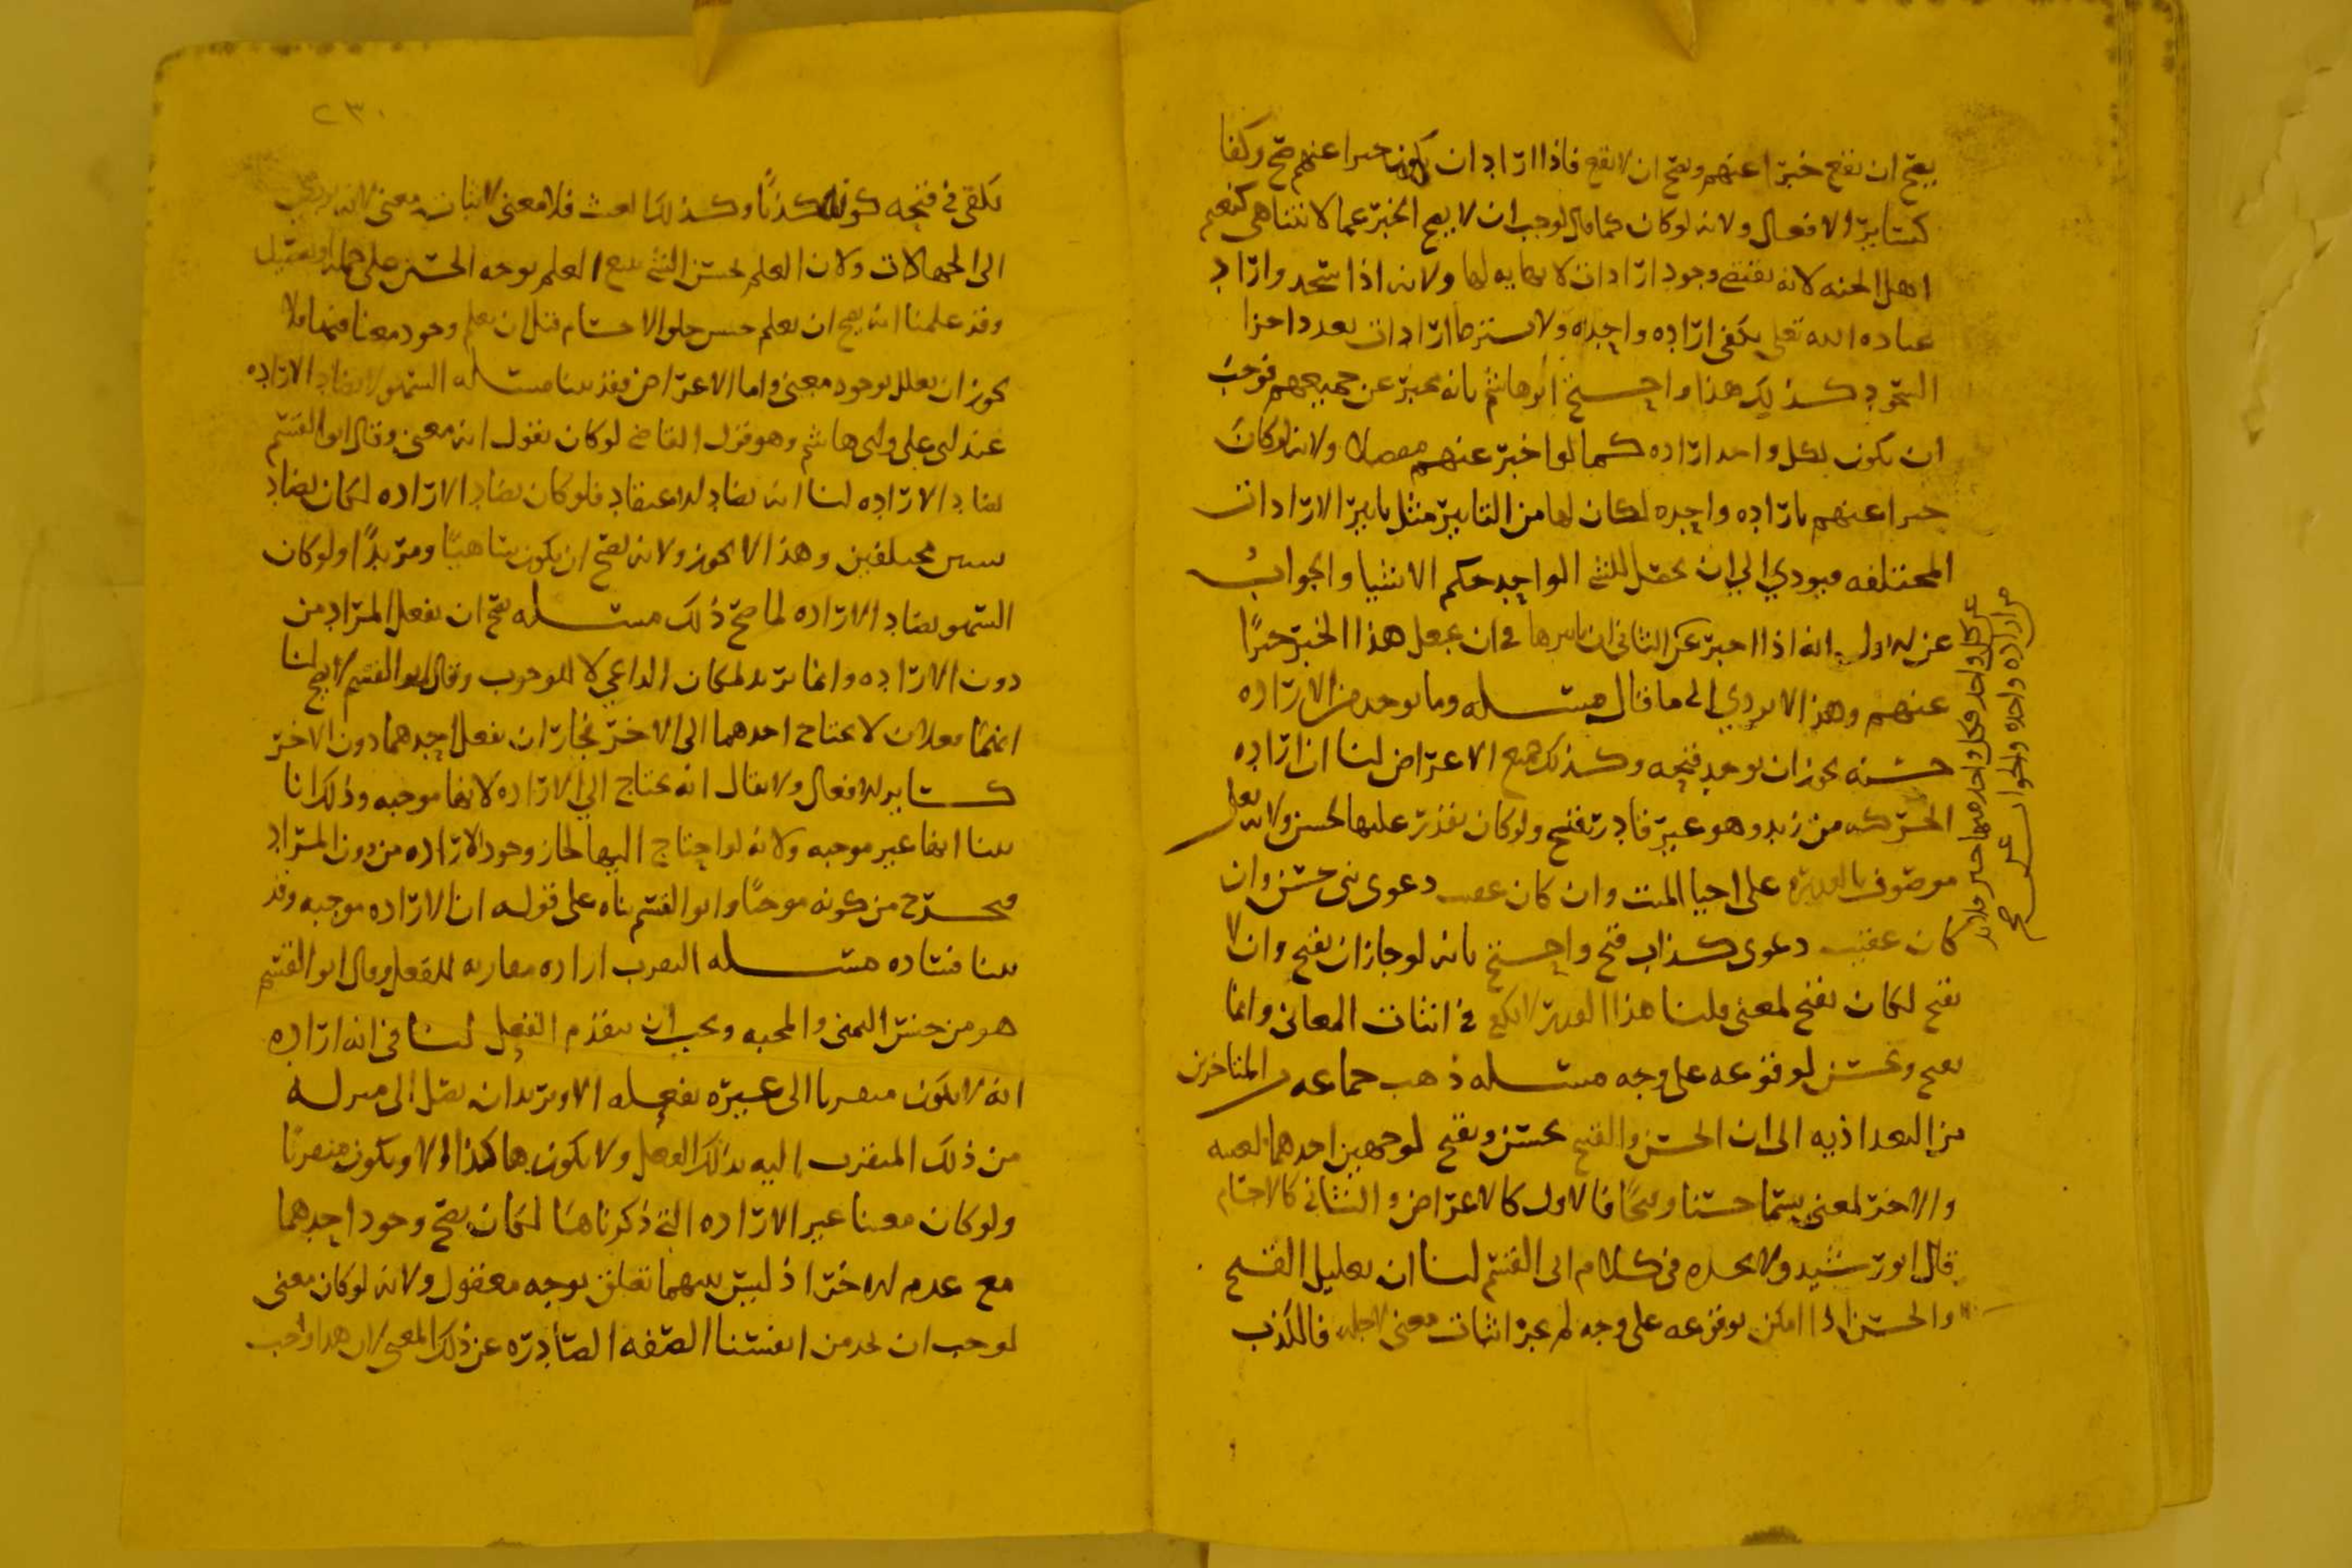 يصح ان يقع خبرا عنهم ويصح ان لا يقع فاذا اراد ان يكون خبرا عنهم صح وكفا
كسائر الافعال ولانه لو كان كما قال لوجب ان لا يصح الخبر عما لا يتناهى كنعيم
اهل الجنه لانه يقتضي وجود ارادات لا نهايه لها ولانه اذا سجد واراد
عباده الله تعلى يكفي اراده واحده ولا يشترط ارادات بعدد اجزا
السجود كذلك هذا واحتج ابو هاشم بانه يخبر عن جميعهم فوجب
ان يكون لكل واحد اراده كما لو اخبر عنهم مفصلا ولانه لو كان
خبرا عنهم باراده واحده لكان لها من التاثير مثل تاثير الارادات
المختلفه فيودي الى ان يحصل للشي الواحد حكم الاشيا والجواب
عن الاول انه اذا اخبر عن الثاني ان تاثيرها في ان يجعل هذا الخبر خبرًا
عنهم وهذا لا يودي الى ما قال مسله وما يوجد من الاراده
حسنه يجوز ان يوجد قبيحه وكذلك جميع الاعراض لنا ان اراده
الحركه من زيد وهو غير قادر تقبح ولو كان يقدر عليها لحسن ولا يقال
موصوف بالقدره على احيا الميت وان كان عقيب دعوى نبي حسن وان
كان عقيب دعوى كذاب قبح واحتج بانه لو جاز ان يقبح وان لا
يقبح لكان يقبح لمعنى قلنا هذا القدر لا يكفي في اثبات المعاني وانما
يقبح ويحسن لوقوعه على وجه مسله ذهب جماعه من المتاخرين
من البغداذيه الى ان الحسن والقبيح يحسن ويقبح لوجهين احدهما لعينه
والاخر لمعنى يسما حسنا وقبحًا فالاول كالاعراض والثاني كالاجسام
قال ابو رشيد ولا نجده في كلام ابي القسم لنا ان تعليل القبح
والحسن اذا امكن بوقوعه على وجه لم يجز اثبات معنى لاجله فالكذب
عن كل واحد فكل واحد منهما خبر
مراد اراده واحده والجواب
٢٣٠
يكفي في قبحه كونه كذبًا وكذلك العبث فلا معنى لاثبات معنى لانه يودي
الى الجهالات ولان العلم بحسن الشي يتبع العلم بوجه الحسن على جمله او تفصيل
وقد علمنا انه يصح ان يعلم حسن خلق الاجسام قبل ان يعلم وجود معنا فيها فلا
يجوز ان يعلل بوجود معنى واما الاعراض فقد بينا مسله السهو لا يضاد الاراده
عند ابي علي وابي هاشم وهو قول القاضي لو كان يقول انه معنى وقال ابو القسم
يضاد الاراده لنا انه يضاد الاعتقاد فلو كان يضاد الاراده لكان يضاد
شيين مختلفين وهذا لا يجوز ولانه يصح ان يكون ساهيًا ومريدًا ولو كان
السهو يضاد الاراده لما صح ذلك مسله يصح ان يفعل المراد من
دون الاراده وانما يريد لمكان الداعي لا للوجوب وقال ابو القسم لا يصح لنا
انهما فعلان لا يحتاج احدهما الى الاخر فجاز ان يفعل احدهما دون الاخر
كسائر الافعال ولا يقال انه يحتاج الى الاراده لانها موجبه وذلك انا
بينا انها غير موجبه ولانه لو احتاج اليها لجاز وجود الاراده من دون المراد
فيخرج من كونه موجبًا وابو القسم بناه على قوله ان الاراده موجبه وقد
بينا فساده مسله التقرب اراده مقارنه للفعل وقال ابو القسم
هو من جنس التمني والمحبه ويجب ان يتقدم الفعل لنا في انه اراده
انه لا يكون متقربا الى غيره بفعله الا ويريد ان يصل الى منزله
من ذلك المتقرب اليه بذلك الفعل ولا يكون هاكذا الا ويكون متقربًا
ولو كان معنا غير الاراده التي ذكرناها لكان يصح وجود احدهما
مع عدم الاخر اذ ليس بينهما تعلق بوجه معقول ولانه لو كان معنى
لوجب ان نجد من انفسنا الصفه الصادره عن ذلك المعنى لان هذا واجب